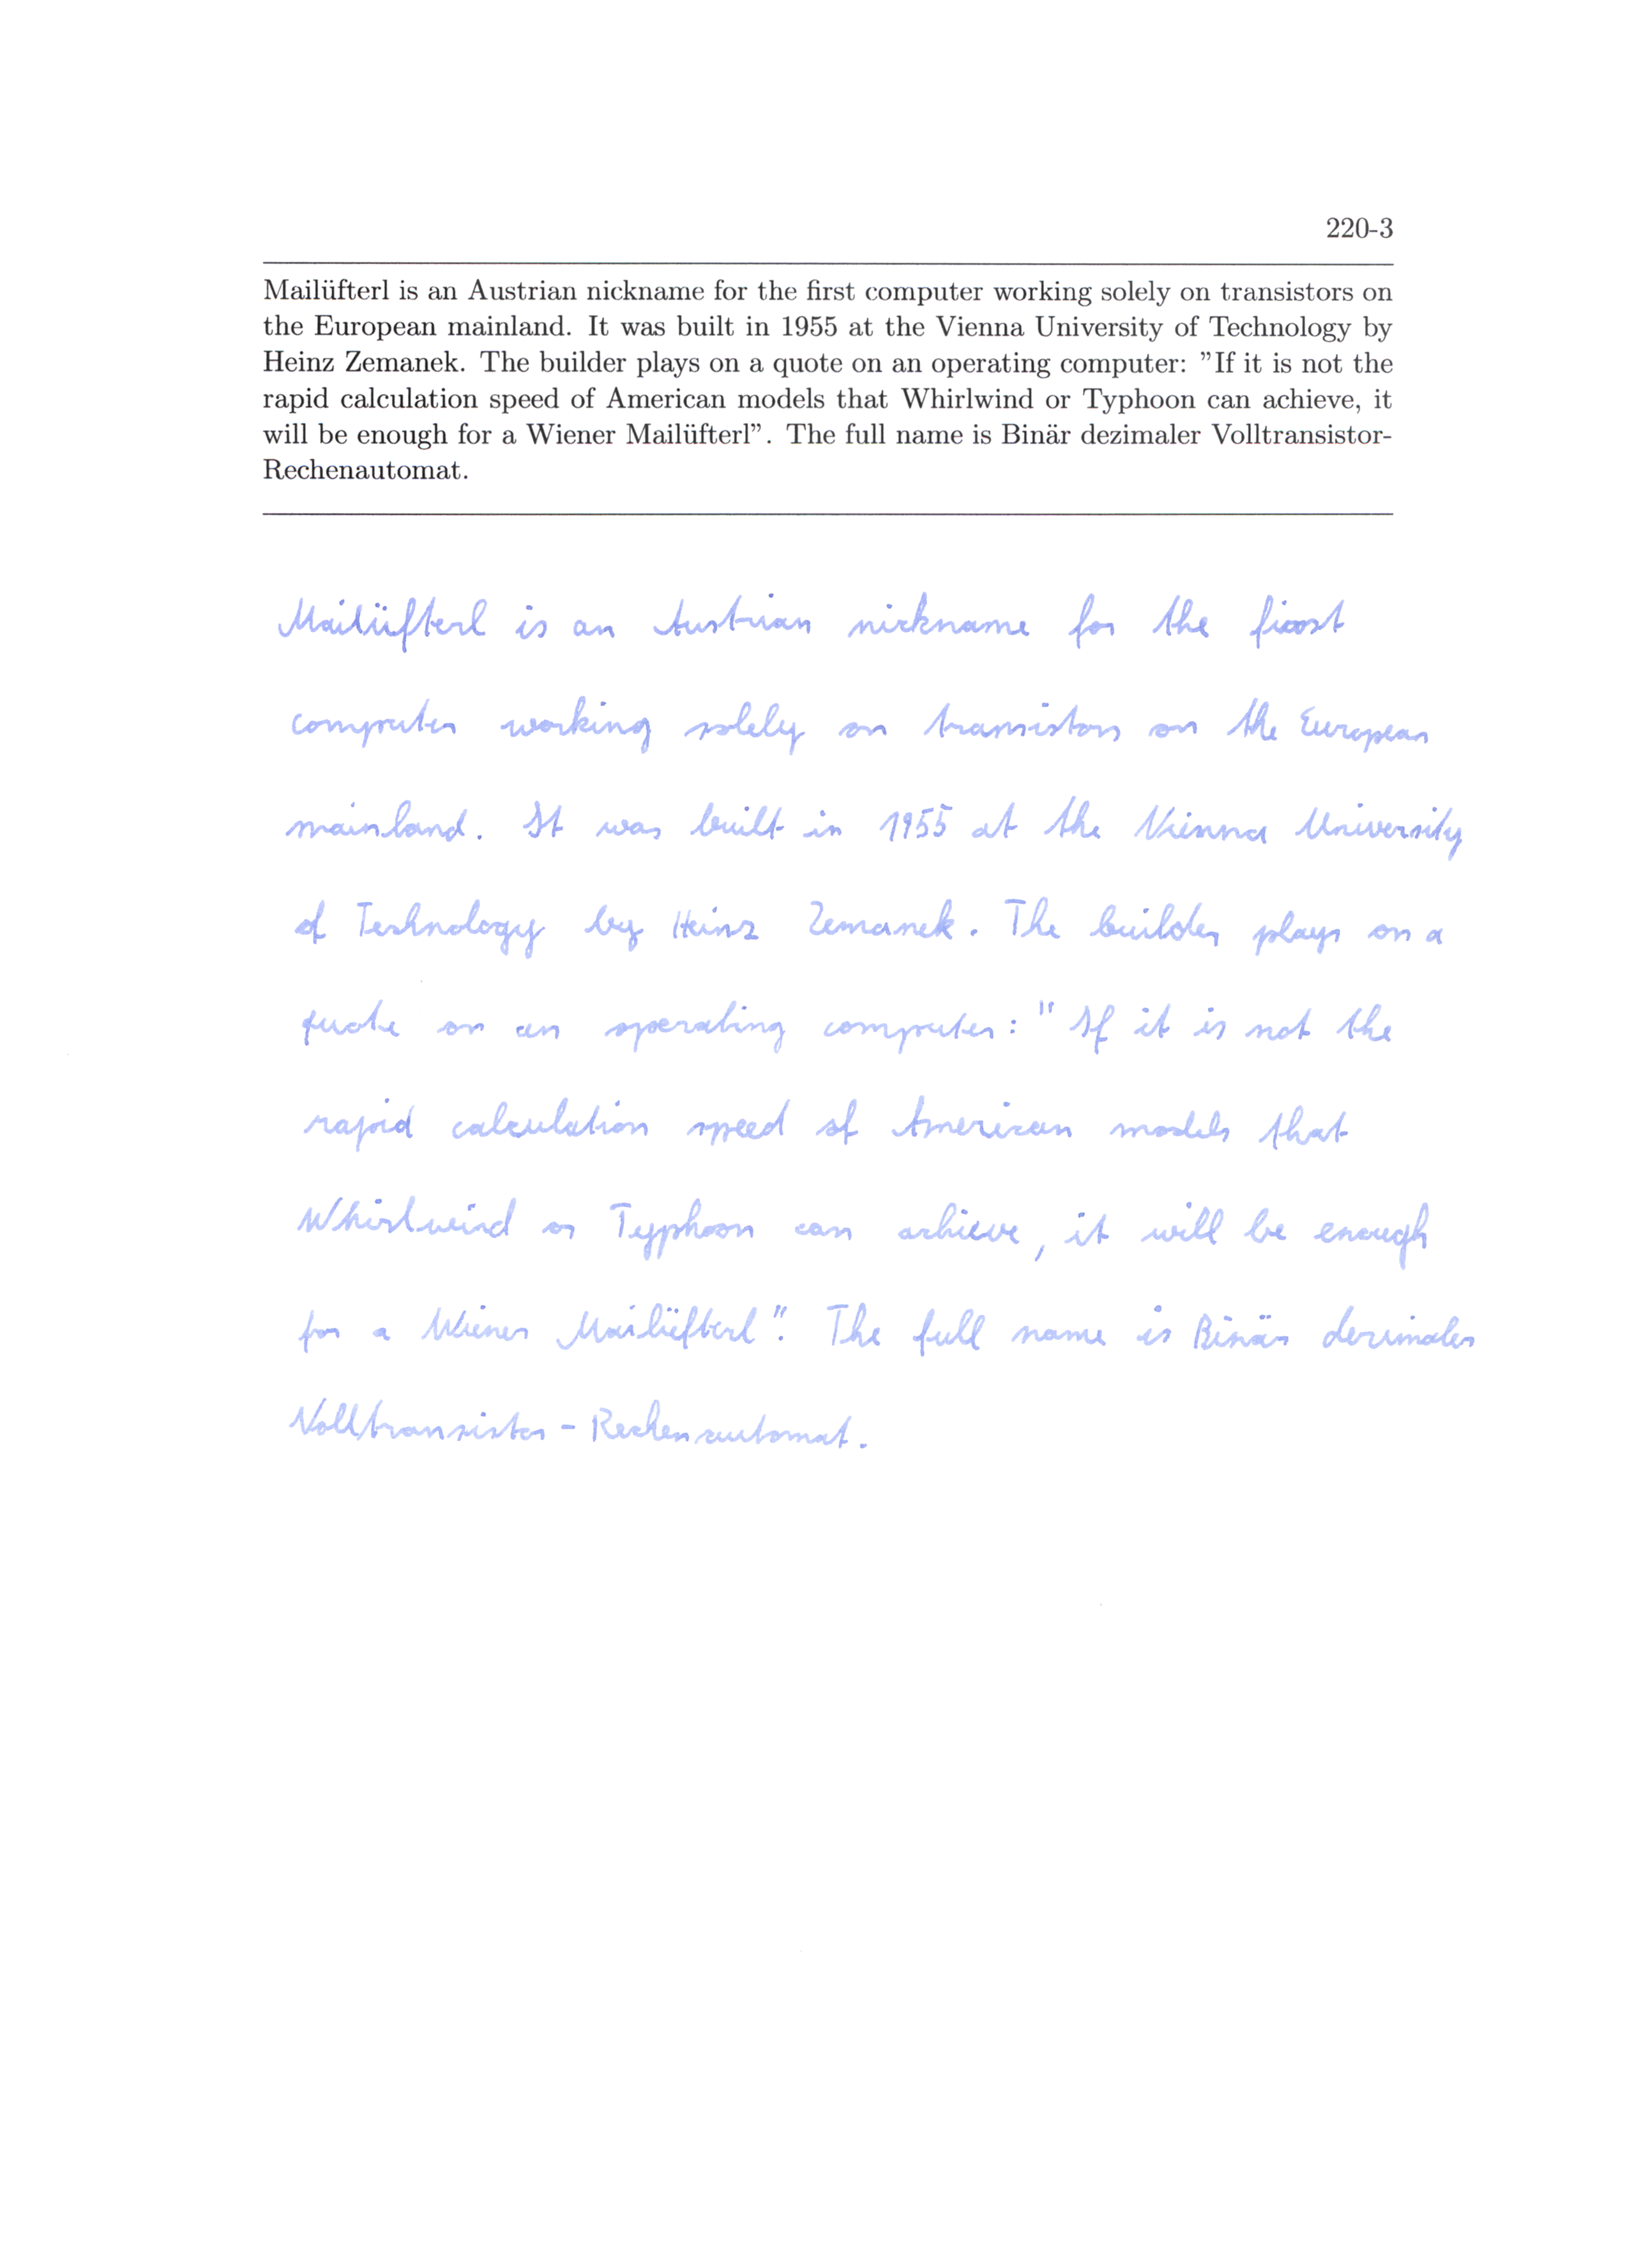 220-3
Mailüfterl is an Austrian nickname for the first computer working solely on transistors on
the European mainland. It was built in 1955 at the Vienna University of Technology by
Heinz Zemanek. The builder plays on a quote on an operating computer: "If it is not the
rapid calculation speed of American models that Whirlwind or Typhoon can achieve, it
will be enough for a Wiener Mailüfterl". The full name is Binär dezimaler Volltransistor-
Rechenautomat.
Mailüfterl is an Austrian nickname for the first
computer working solely on transistors on the European
mainland. It was built in 1955 at the Vienna University
of Technology by Heinz Zemanek. The builder plays on a
quote on an operating computer: "If it is not the
rapid calculation speed of American models that
Whirlwind or Typhoon can achieve, it will be enough
for a Wiener Mailüfterl". The full name is Binär dezimaler
Volltransistor-Rechenautomat.